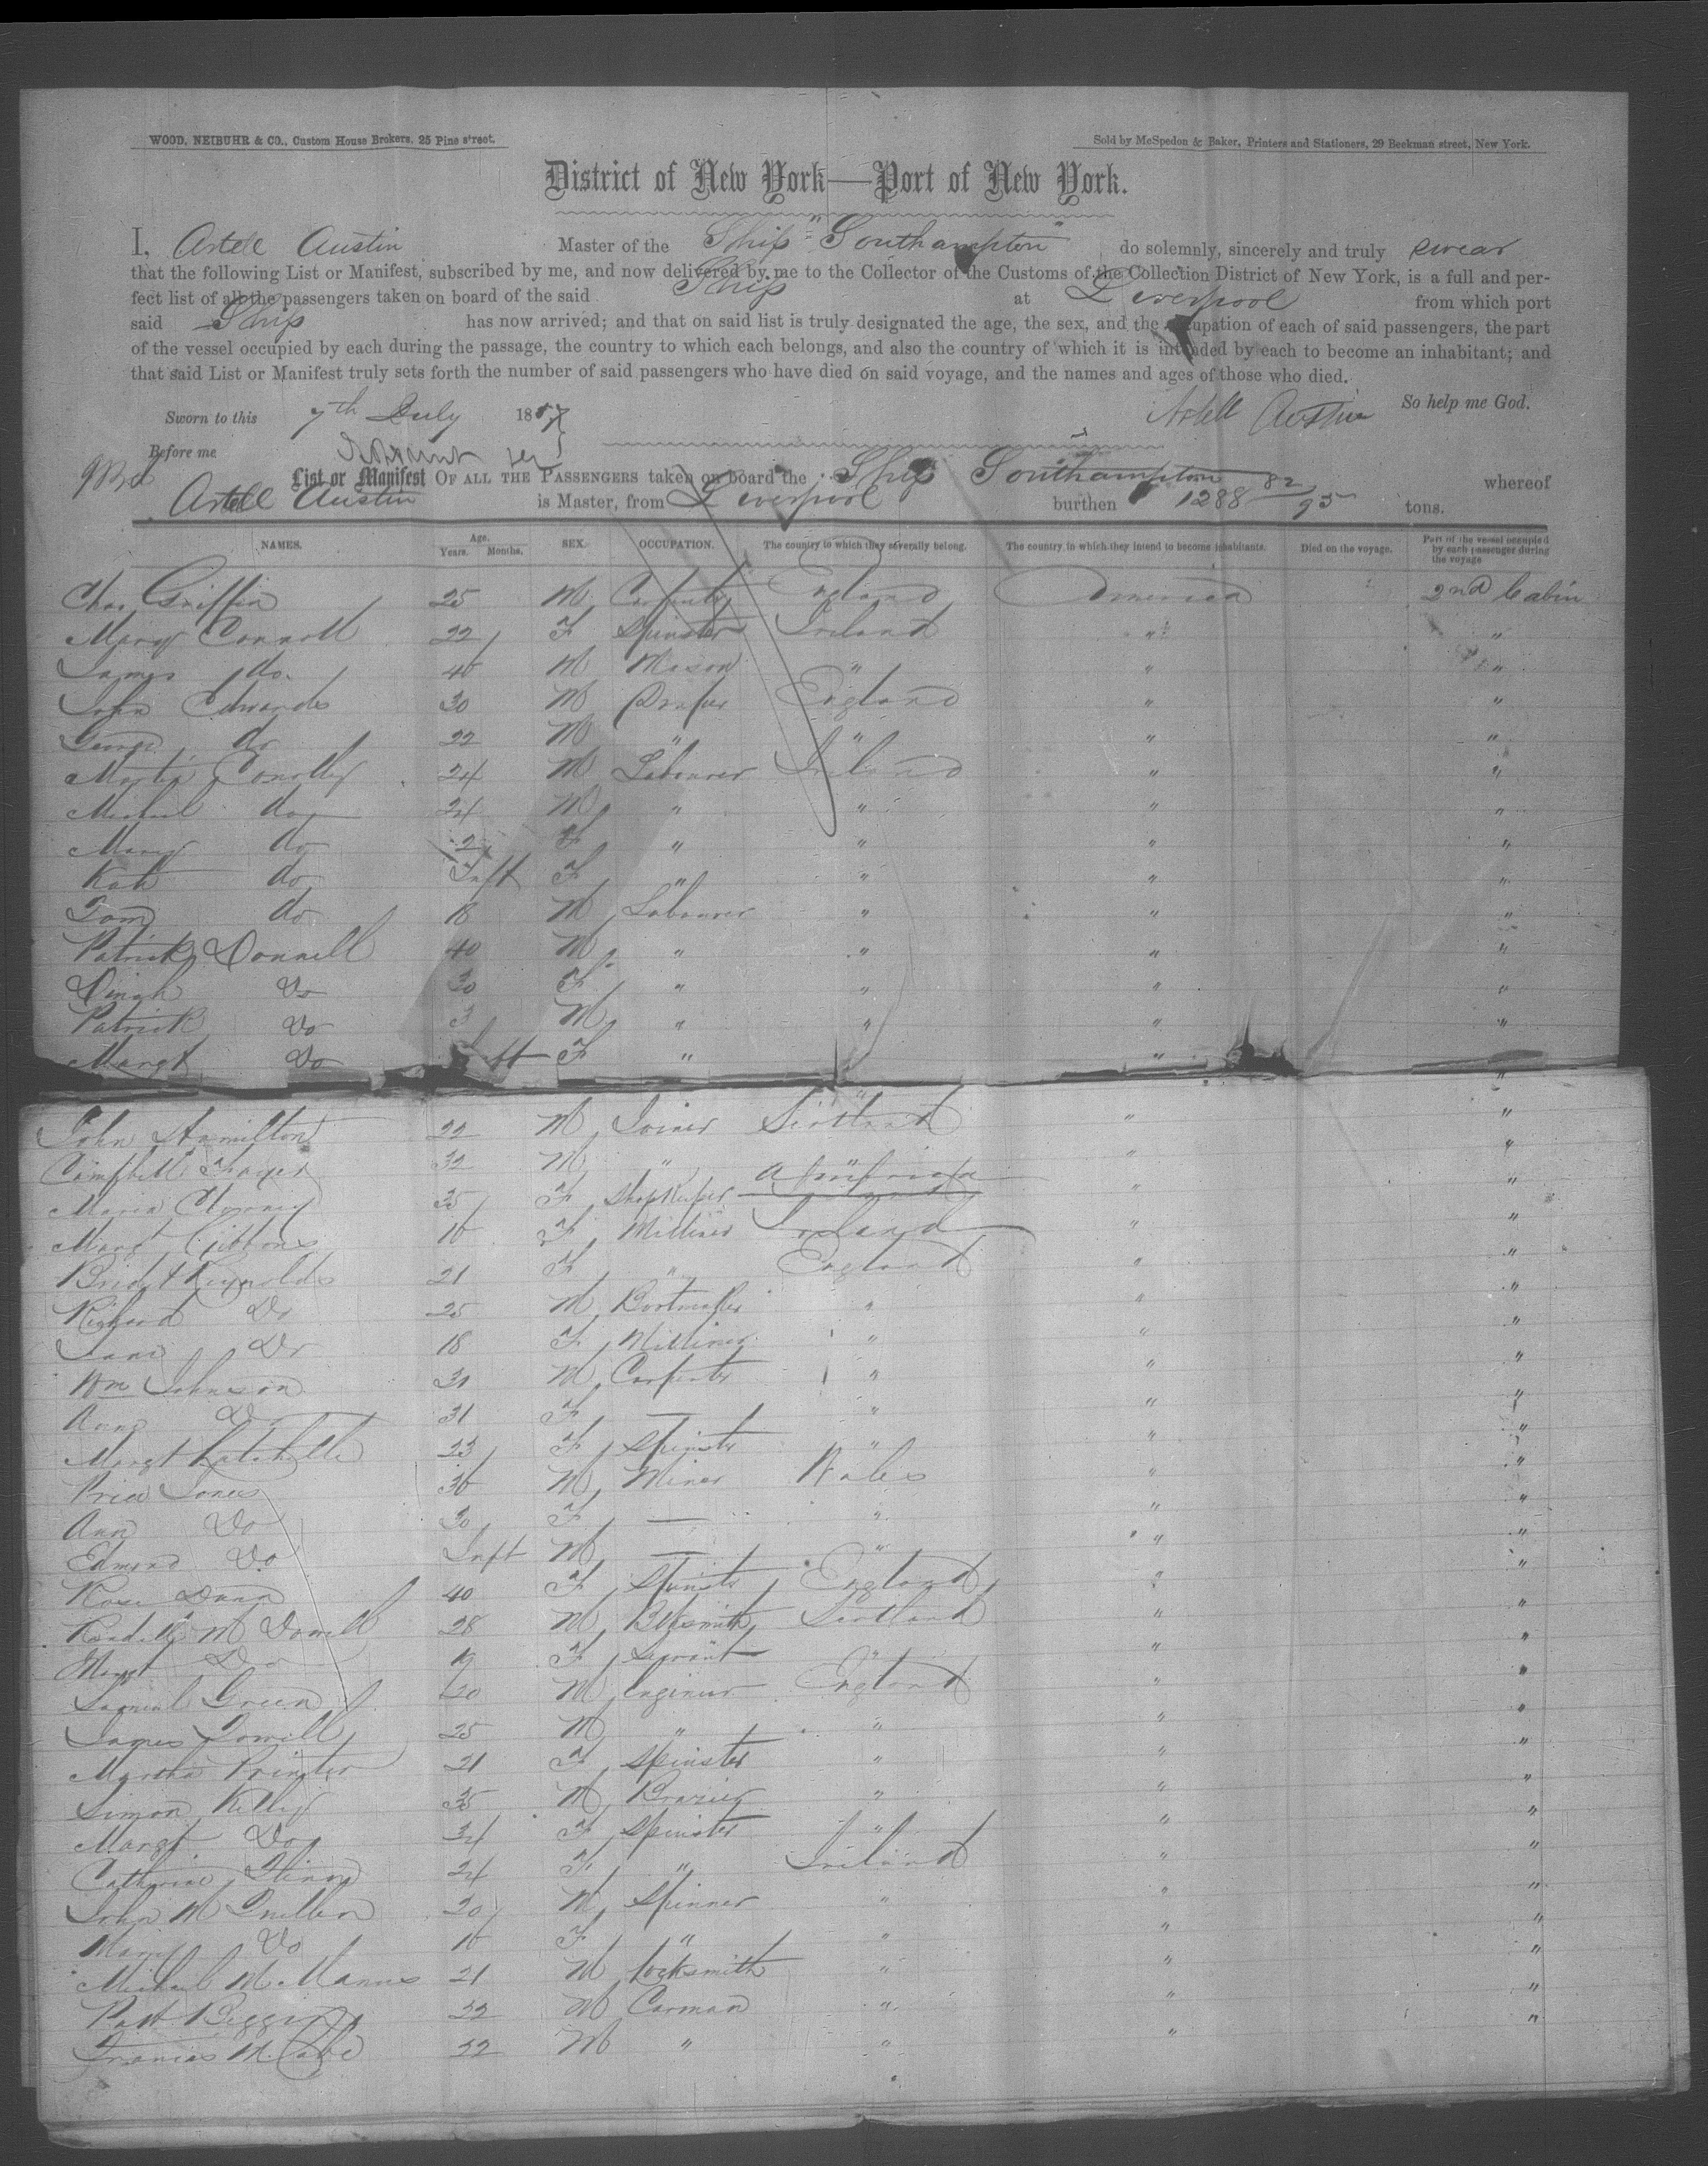 WOOD, NEIBUHR & CO., Custom House Brokers, 25 Pine street.
Sold by McSpedon & Baker, Printers and Stationers, 29 Beekman street, New York.
District of New York—Port of New York.
I, Artell Austin Master of the Ship "Southampton" do solemnly, sincerely and truly swear
that the following List or Manifest, subscribed by me, and now delivered by me to the Collector of the Customs of the Collection District of New York, is a full and per-
fect list of all the passengers taken on board of the said Ship at Liverpool from which port
said Ship has now arrived; and that on said list is truly designated the age, the sex, and the occupation of each of said passengers, the part
of the vessel occupied by each during the passage, the country to which each belongs, and also the country of which it is intended by each to become an inhabitant; and
that said List or Manifest truly sets forth the number of said passengers who have died on said voyage, and the names and ages of those who died.
So help me God.
Sworn to this 7th July 1857 Artell Austin
Before me
List or Manifest OF ALL THE PASSENGERS taken on board the Ship Southampton whereof
Artell Austin is Master, from Liverpool burthen 1288 82/95 tons.
NAMES. Age. Years. Months. SEX. OCCUPATION. The country to which they severally belong. The country in which they intend to become inhabitants. Died on the voyage. Part of the vessel occupied by each passenger during the voyage
Chas Griffin 25 M Carpenter England America 2nd Cabin
Mary Connoll 22 F Spinster Ireland " "
James do. 40 M Mason " " "
John Edwards 30 M Draper England " "
George do 22 M " " " "
Martin Conolly 24 M Labourer Ireland " "
Michael do 24 M " " " "
Mary do 2 F " " " "
Kate do Inft F " " " "
Tom do 18 M Labourer " " "
Patrick Donnell 40 M " " " "
Dinah Do 30 F " " " "
Patrick Do 3 M " " " "
Margt Do Inft F " " "
John Hamilton 22 M Joiner Scotland " "
Campbell 32 M " " "
Maria 35 F Shopkeeper " "
Margt Gibbons F Milliner Ireland " "
Bridgt Reynolds 21 F " England " "
Richard Do 25 M Bootmaker " " "
Jane Do 18 F Milliner " " "
Wm Johnson 31 M Carpenter " " "
Anne Do 31 F — " " "
Margt 23 F Spinster " " "
Price Jones 36 M Miner Wales " "
Ann Do 30 F — " " "
Edmond Do Inft M — " " "
Rose Dunn 40 F Spinster England " "
Randall McDowell 28 M Blksmith Scotland " "
Margt Do 19 F Servant " " "
Samuel Green 20 M Engineer England " "
James Powell 25 M " " " "
Martha Printer 21 F Spinster " " "
Simon Kelly 35 M Brazier " " "
Margt Do 34 F Spinster " " "
Catherine 24 F " Ireland " "
John McQuillon 20 M Spinner " " "
Mary Do F " " " "
Michael McManus 21 M Locksmith " " "
Patt Beggin 22 M Carman " " "
Francis McCabe 22 M " " "